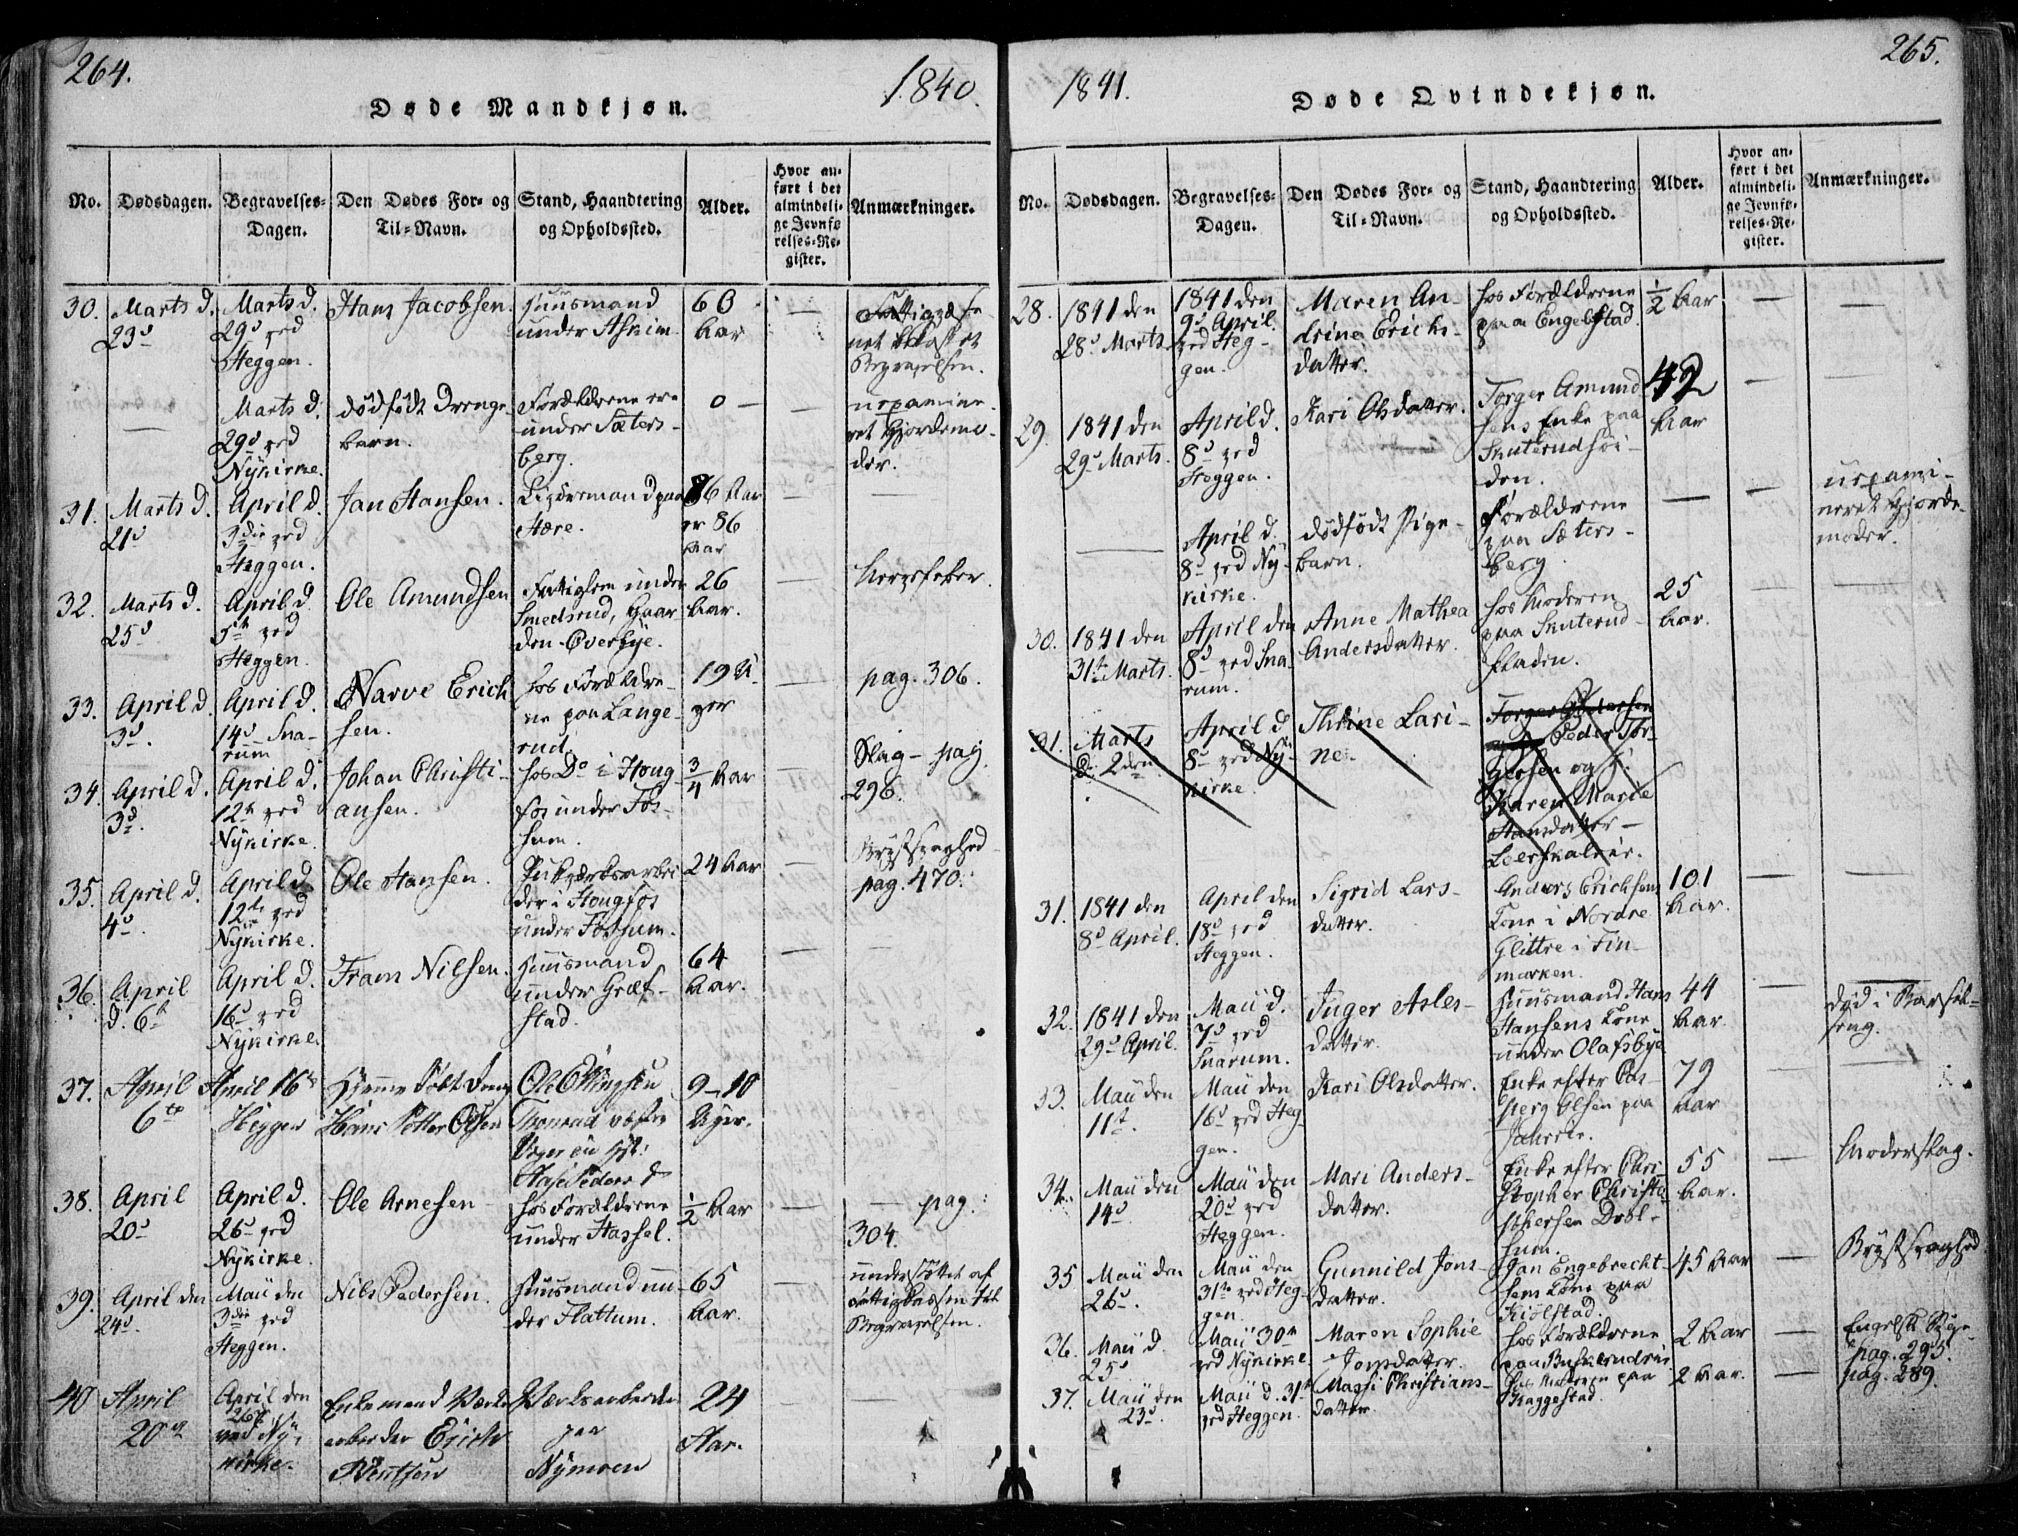 264.
1840.
Døde Mandkjøn.
No.
Dødsdagen.
Begravelses-
Dagen.
Den Dødes For- og
Til-Navn.
Stand, Haandtering
og Opholdssted.
Alder.
Hvor an-
ført i det
almindeli-
ge Jevnfø-
relses-Re-
gister.
Anmærkninger.
30.
Marts d.
23d
Marts d.
29d ved
Heggen.
Hans Jacobsen.
Huusmand
under Askim
63
Aar
net bekostet
Begravelsen.
Marts d.
29d ved
Nykirke.
dødfødt Drenge-
barn.
Forældrene ere
under Sæters-
berg.
0
uexamine-
ret Gjordemo-
der.
31.
Marts d.
21d
April d.
3die ved
Heggen.
Jan Hansen.
paa
Hære.
86 Aar
er 86
Aar
32.
Marts d.
25d
April d.
5te ved
Heggen.
Ole Amundsen
Fattiglem under
Smedsrud, Gaar-
den Overbye.
26
Aar.
Nervefeber.
33.
April d.
3d.
April d.
14d Sna-
rum
Narve Erich
sen.
hos Forældre-
ne paa Lange-
rud.
19 U-
ger
pag. 306.
34.
April d.
3d.
April d.
12te ved
Nykirke.
Johan Christi-
ansen.
hos Do i Houg-
fos under Fos-
sum.
3/4 Aar
Slag- pag.
296.
35.
April d.
4d.
April d.
12te ved
Nykirke.
Ole Hansen.
Pukværksarbei-
der i Hougfos
under Fossum.
24 Aar
Brystsvaghed
pag. 470.
36.
April
d. 6te
April d.
16d ved
Nykirke.
Frans Nilsen.
Huusmand
under Græf-
stad.
64
Aar.
37.
April
6te
April 16de
Heggen
Hjemme døbt Dreng
Hans Petter Olsen
Ole Ellingsen
9-10
Uger.
38.
April
20d
April d.
26d ved
Nykirke.
Ole Arnesen
hos Forældrene
under Hassel.
1/2 Aar
pag:
304.
39.
April den
24d.
Maii den
3die ved
Heggen.
Nils Pedersen.
Huusmand un-
der Flattum.
65
Aar.
understøttet af
Fattigkassen til
Begravelsen.
40
April
20de
April den
26de
ved Ny-
kirke.
Enkemand Værks
arbeider Erich
Værksarbeider
paa
Nymoen
24
Aar.
265.
1841.
Døde Qvindekjøn.
No.
Dødsdagen.
Begravelses-
Dagen.
Den Dødes For- og
Til-Navn.
Stand, Haandtering
og Opholdssted.
Alder.
Hvor an-
ført i det
almindeli-
ge Jevnfø-
relses-Re-
gister.
Anmærkninger.
28.
1841 den
28d Marts
1841 den
9d April.
ved Heg-
gen.
Maren An-
drine Erichs-
datter.
hos Forældrene
paa Engelstad.
1/2 Aar
29.
1841 den
29d Marts.
April d.
8d ved
Heggen.
Kari Olsdatter.
Torger Amund
sens Enke paa
Skuterudsøi-
den.
42
Aar
April d.
8d ved Ny-
kirke.
dødfødt Pige-
barn.
Forældrene
paa Sæters-
berg.
uexami-
neret Gjorde-
moder.
30.
1841 den
31te Marts.
April den
8d ved Sna-
rum.
Anne Mathea
Andersdatter.
hos Moderen
paa Skuterud-
fladen.
25
Aar.
31.
Marts
d. 2den
April d.
8d ved Ny-
kirke.
Thrine Lari-
ne.
Torger Pedersen
Peder Tor-
gersen og
Karen Marie
Hansdatter-
Leerskaler.
31.
1841 den
8d April.
April den
18d ved
Heggen.
Sigrid Lars-
datter.
Anders Erichsens
Kone i Nordre
Glittre i Fin-
marken.
101
Aar.
32.
1841 den
29d April.
Maii d.
7d ved
Snarum.
Inger Asles-
datter.
Huusmand Hans
Hansens Kone
under Olafsbye
44
Aar.
død i Barsel-
seng.
33.
Maii den
11te.
Maii den
16d ved Heg-
gen.
Kari Olsdatter.
Enke efter
Olsen paa
79
Aar
34.
Maii den
14d.
Maii den
20d ved
Heggen.
Mari Anders-
datter.
Enke efter Chri-
stopher Christo-
phersen Drol-
sum.
55
Aar.
Moderslag.
35
Maii den
26d.
Maii den
31te ved Heg-
gen.
Gunnild Jons-
datter.
Jan Engebrecht-
sens Kone paa
Kiølstad.
45 Aar
Brystsvaghed
36.
Maii d.
25d
Maii 30te
ved Nykirke
Maren Sophie
Jonsdatter.
hos Forældrene
paa Buskerudeie
2 Aar
Engelsk Syge-
pag. 295.
37.
Maii den
23d.
Maii d. 31te
ved Heggen.
Massi Christians-
datter.
hos Moderen paa
Kaggestad.
2 Aar.
pag. 289.